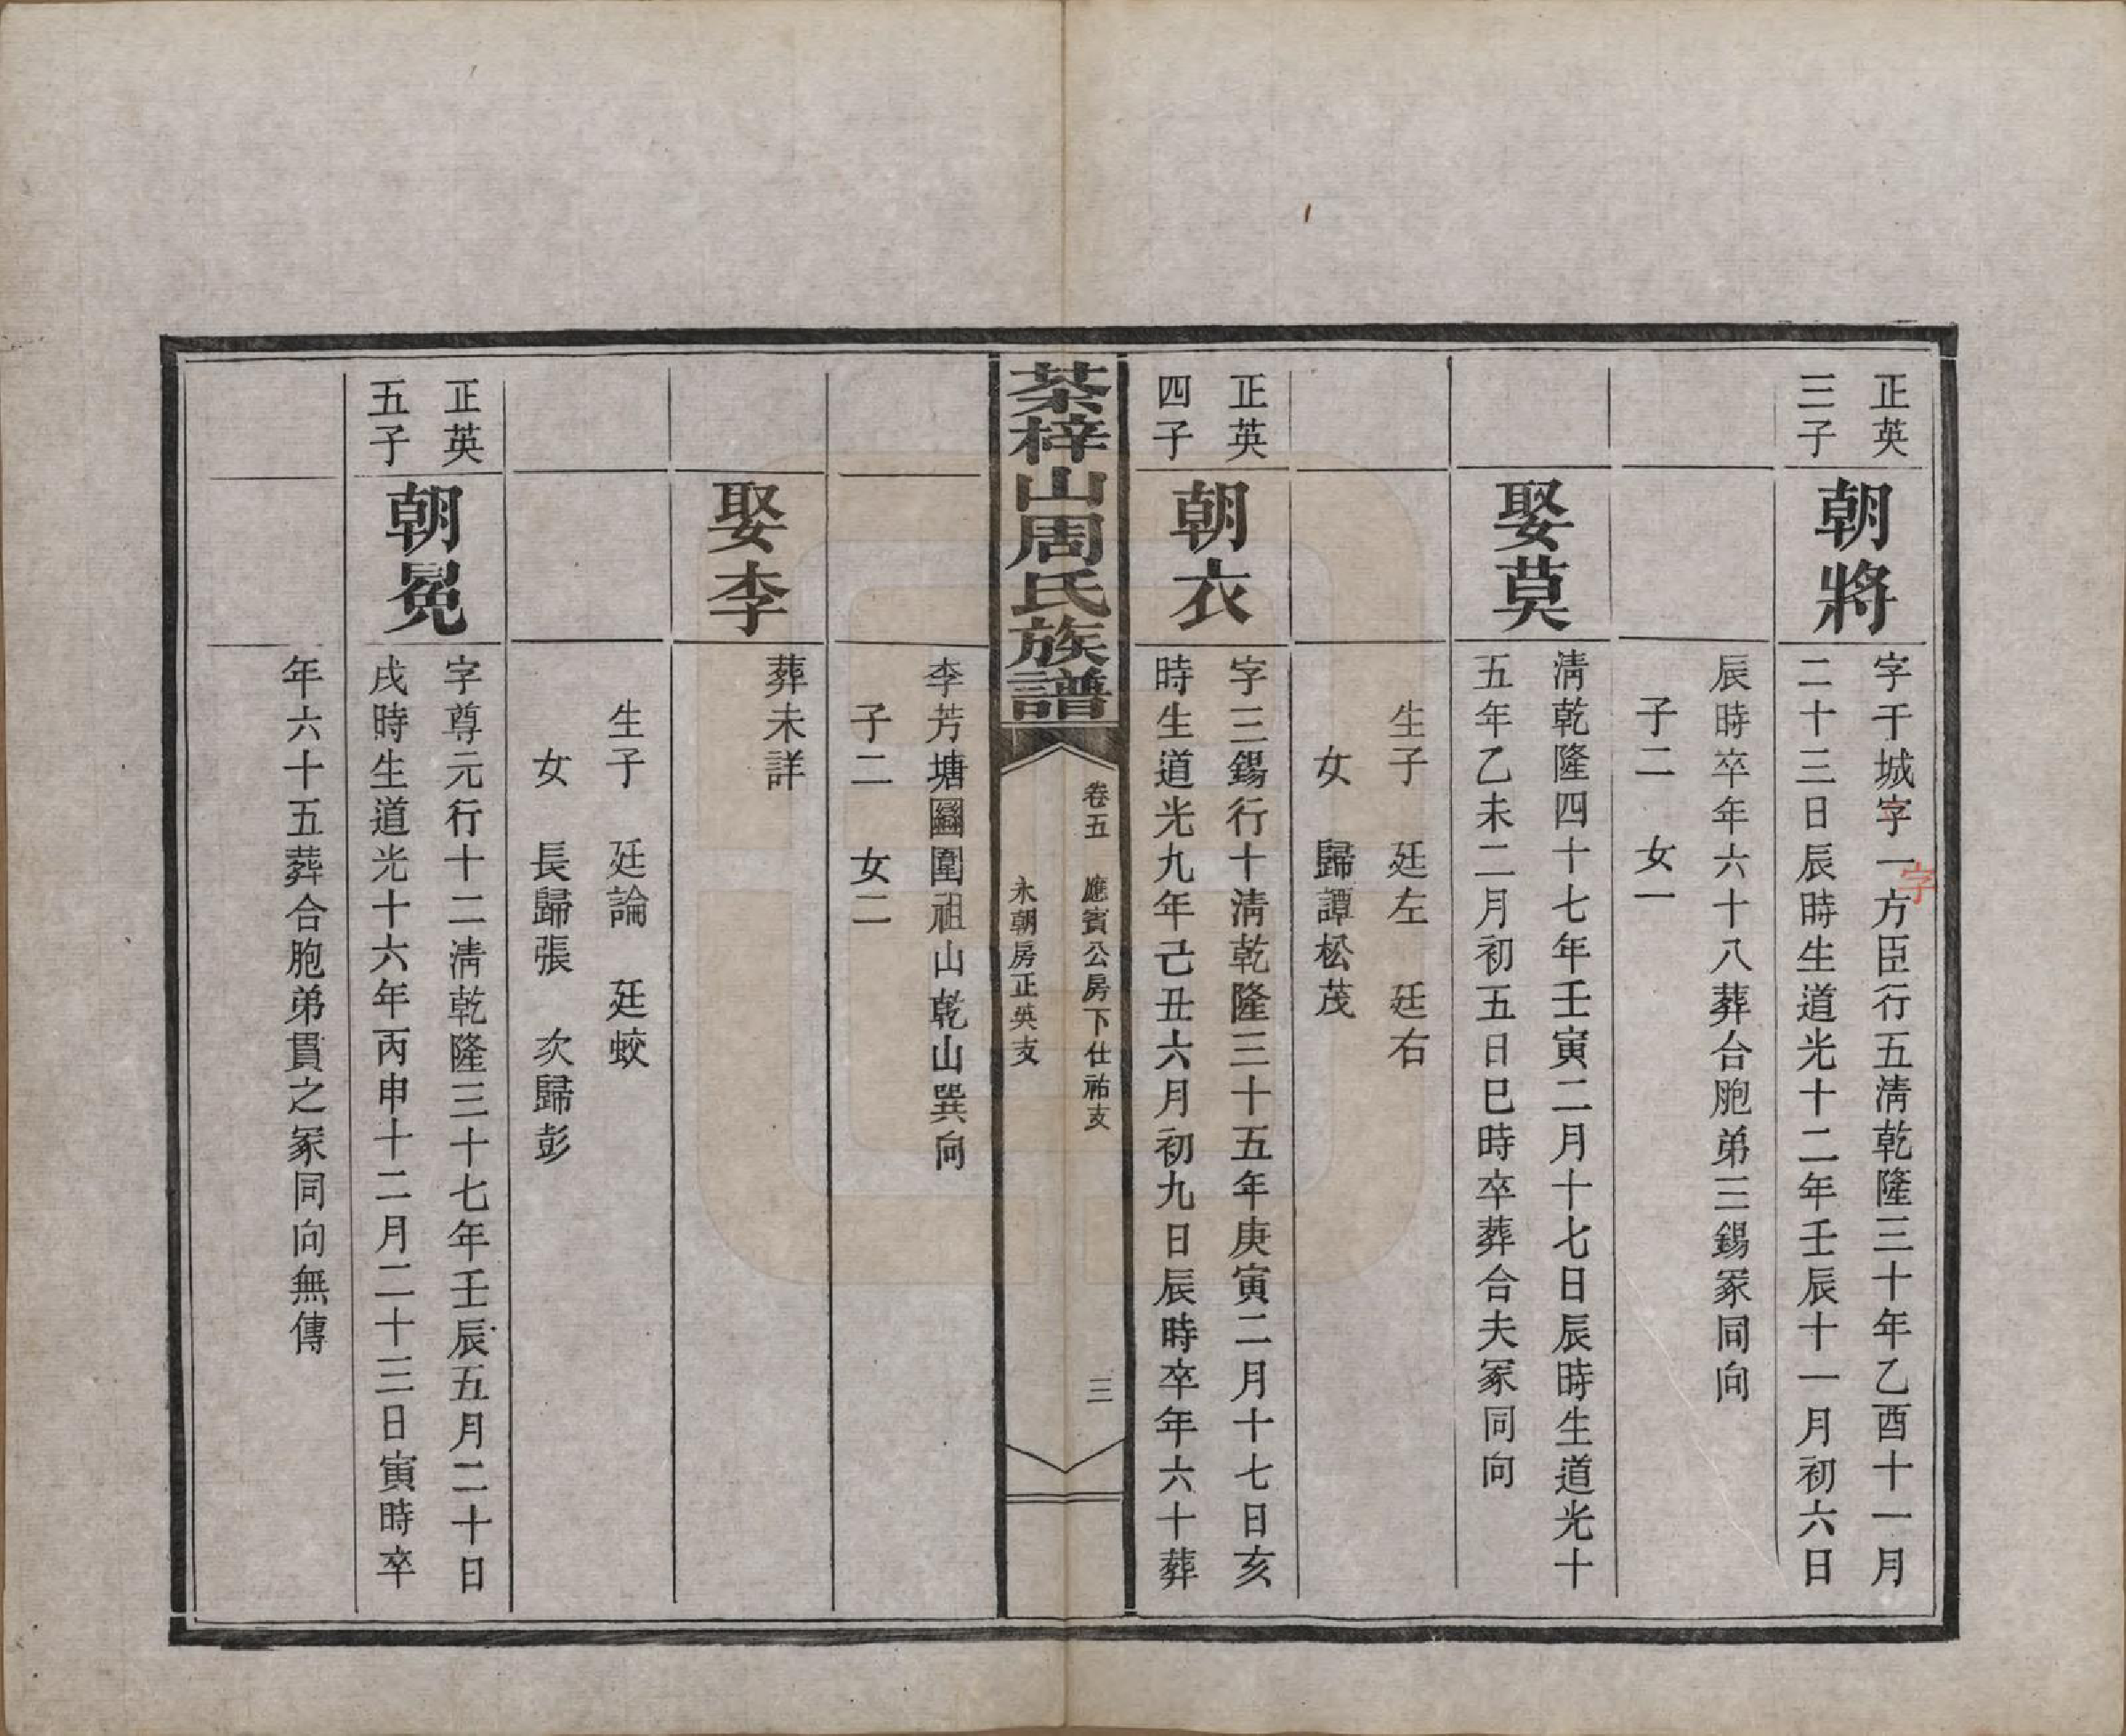 正英
三子
朝將
字干城字一方臣行五清乾隆三十年乙酉十一月
字
二十三日辰時生道光十二年壬辰十一月初六日
辰時卒年六十八葬合胞弟三錫冢同向
子二　女一
娶莫
清乾隆四十七年壬寅二月十七日辰時生道光十
五年乙未二月初五日巳時卒葬合夫冢同向
生子　廷左　廷右
女　歸譚松茂
正英
四子
朝衣
字三錫行十清乾隆三十五年庚寅二月十七日亥
時生道光九年己丑六月初九日辰時卒年六十葬
茶梓山周氏族譜
卷五　應賓公房下仕祐支
永朝房正英支
三
李芳塘圍祖山乾山巽向
子二　女二
娶李
葬未詳
生子　廷論　廷蛟
女　長歸張　次歸彭
正英
五子
朝冕
字尊元行十二清乾隆三十七年壬辰五月二十日
戌時生道光十六年丙申十二月二十三日寅時卒
年六十五葬合胞弟貫之冢同向無傳